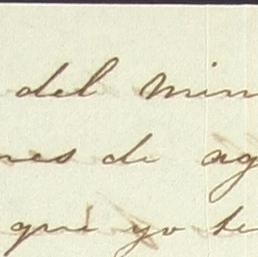 del min
nes de ag
que yo te